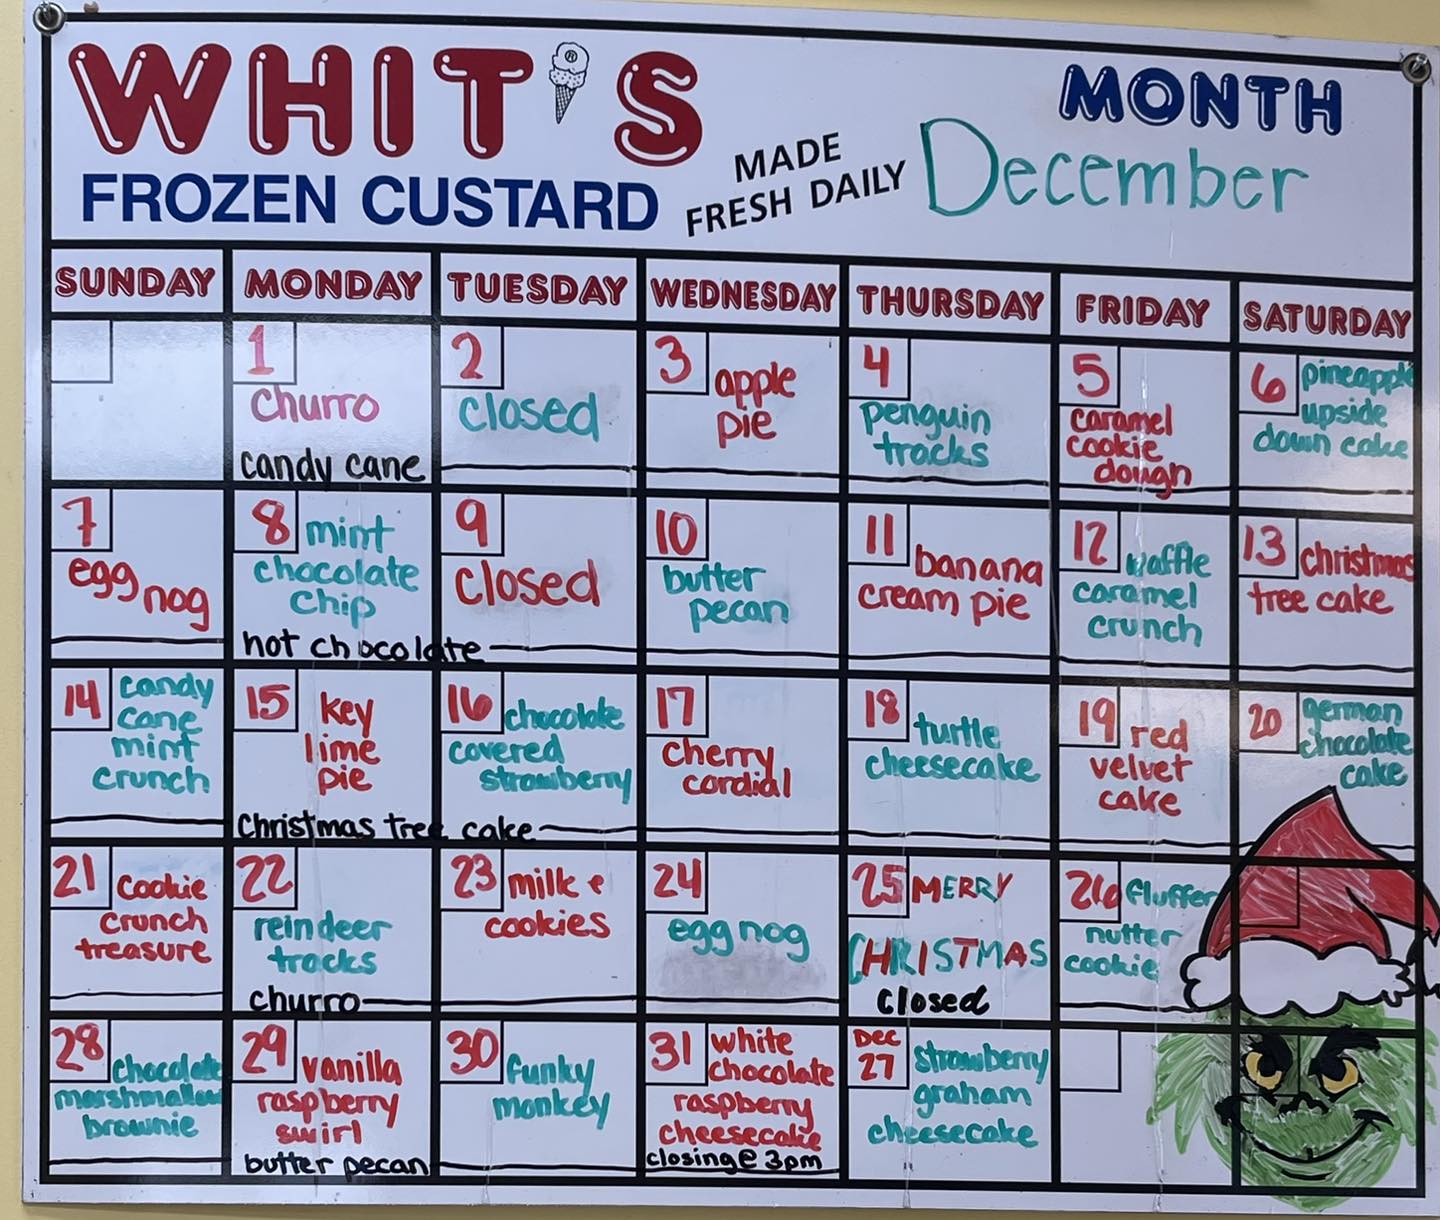 WHIT'S
FROZEN CUSTARD
MADE
FRESH DAILY
MONTH
December
SUNDAY MONDAY TUESDAY WEDNESDAY THURSDAY FRIDAY SATURDAY
1
churro
candy cane
2
closed
3 apple
pie
4
penguin
tracks
5
caramel
cookie
dough
6 pineapple
upside
down cake
7
egg nog
8 mint
chocolate
chip
hot chocolate
9
closed
10
butter
pecan
11 banana
cream pie
12 waffle
caramel
crunch
13 christmas
tree cake
14 candy
cane
mint
crunch
15 key
lime
pie
christmas tree cake
16 chocolate
covered
strawberry
17
cherry
cordial
18 turtle
cheesecake
19 red
velvet
cake
20 german
chocolate
cake
21 cookie
crunch
treasure
22
reindeer
tracks
churro
23 milk +
cookies
24
egg nog
25 MERRY
CHRISTMAS
closed
26 fluffer
nutter
cookie
28 chocolate
marshmallow
brownie
29 vanilla
raspberry
swirl
butter pecan
30 funky
monkey
31 white
chocolate
raspberry
cheesecake
closing @ 3pm
DEC
27 strawberry
graham
cheesecake